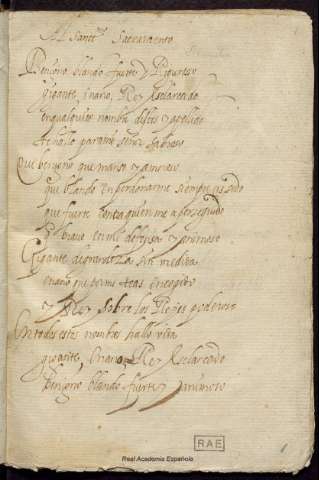 Al Santº Sacramento
Benigno blando fuerte y Riguroso
gigante enano, Rey esclarecido
en qualquier nombre destos y apellido
te hallo para mi señor sabroso
Que benigno que manso y amoroso
que blando en perdonarme siempre has sido
que fuerte contra quien me a perseguido
que bravo en mi defensa y animoso
Gigante de grandeza sin medida
enano que por mi estas encogido
y Rey sobre los Reyes poderoso
En todos estos nombres hallo vida
gigante, enano, Rey esclarecido
benigno blando fuerte y animoso
RAE
Real Academia Española